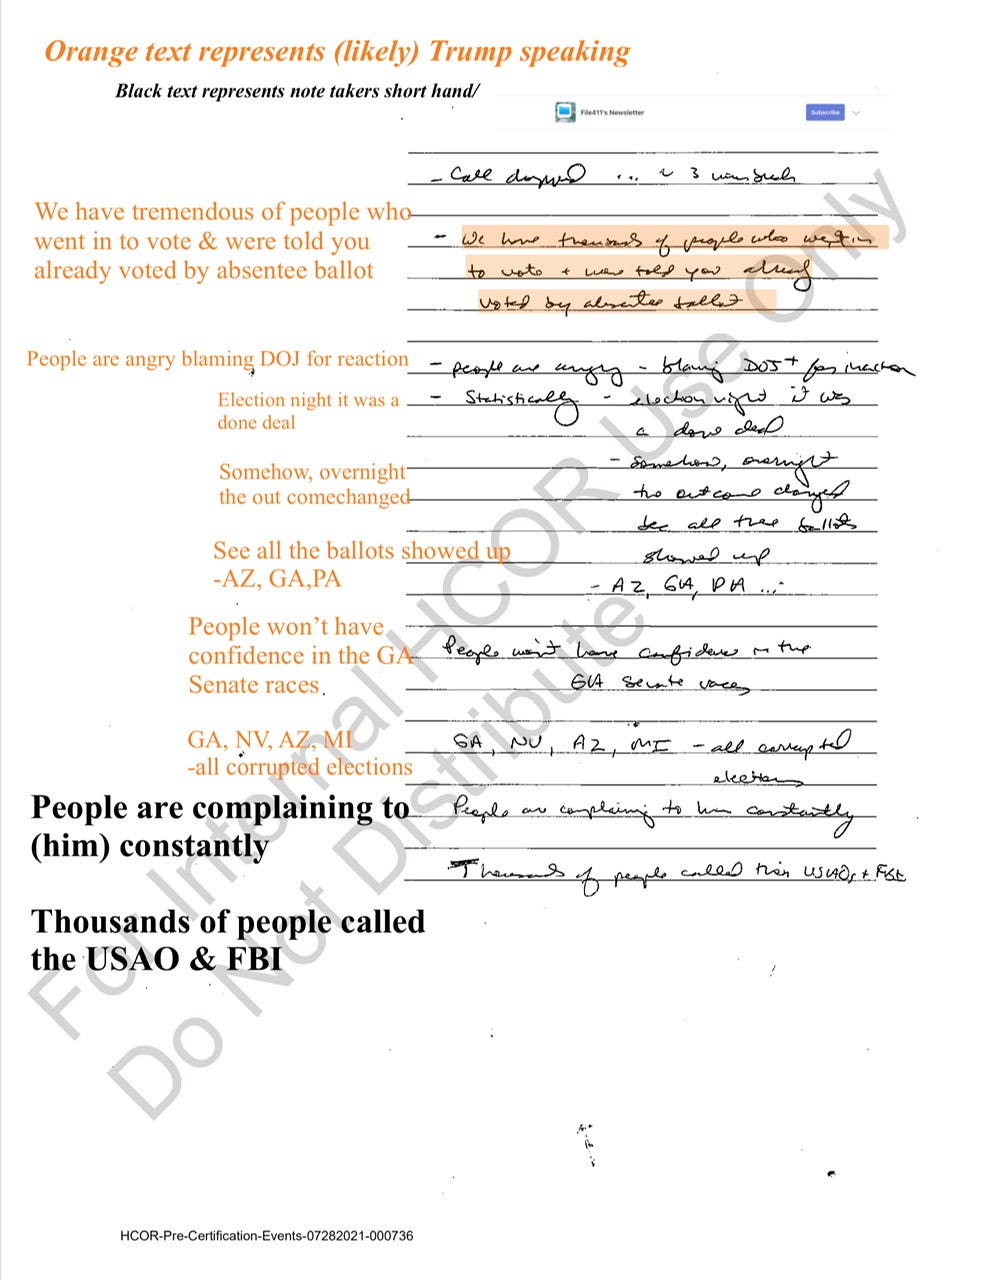 Orange text represents (likely) Trump speaking
Black text represents note takers short hand/
File411's Newsletter
Subscribe
- Call dropped ... ~ 3
We have tremendous of people who
went in to vote & were told you
already voted by absentee ballot
- We have thousands of people who went in
to vote + were told you already
voted by absentee ballot
People are angry blaming DOJ for reaction
- people are angry - blaming DOJ+ for inaction
Election night it was a
done deal
- Statistically - election night it was
a done deal
Somehow, overnight
the out comechanged
- Somehow, overnight
the outcome changed
bec all these ballots
showed up
See all the ballots showed up
-AZ, GA,PA
- AZ, GA, PA ...
People won't have
confidence in the GA
Senate races
People won't have confidence in the
GA Senate races
GA, NV, AZ, MI
-all corrupted elections
GA, NV, AZ, MI - all corrupted
elections
People are complaining to
(him) constantly
People are complaining to him constantly
Thousands of people called
the USAO & FBI
Thousands of people called their USAOs + FBI
For Internal HCOR Use Only
Do Not Distribute
HCOR-Pre-Certification-Events-07282021-000736